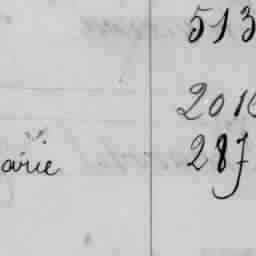 513
201
arie 287